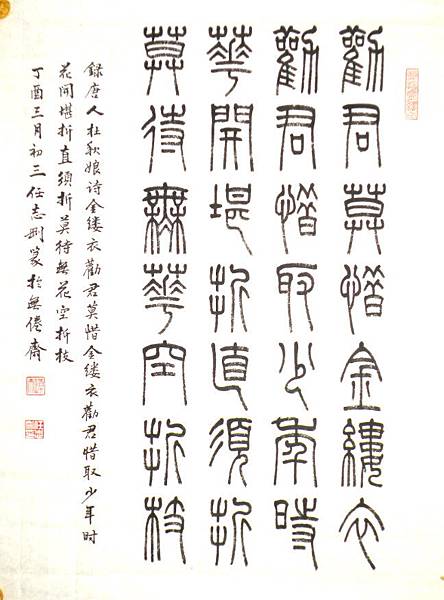 勸君莫惜金縷衣
勸君惜取少年時
華開堪折直須折
莫待無華空折枝
錄唐人杜秋娘诗金缕衣勸君莫惜金缕衣勸君惜取少年时
花開堪折直须折莫待無花空折枝
丁酉三月初三任志刚篆於無倦齋